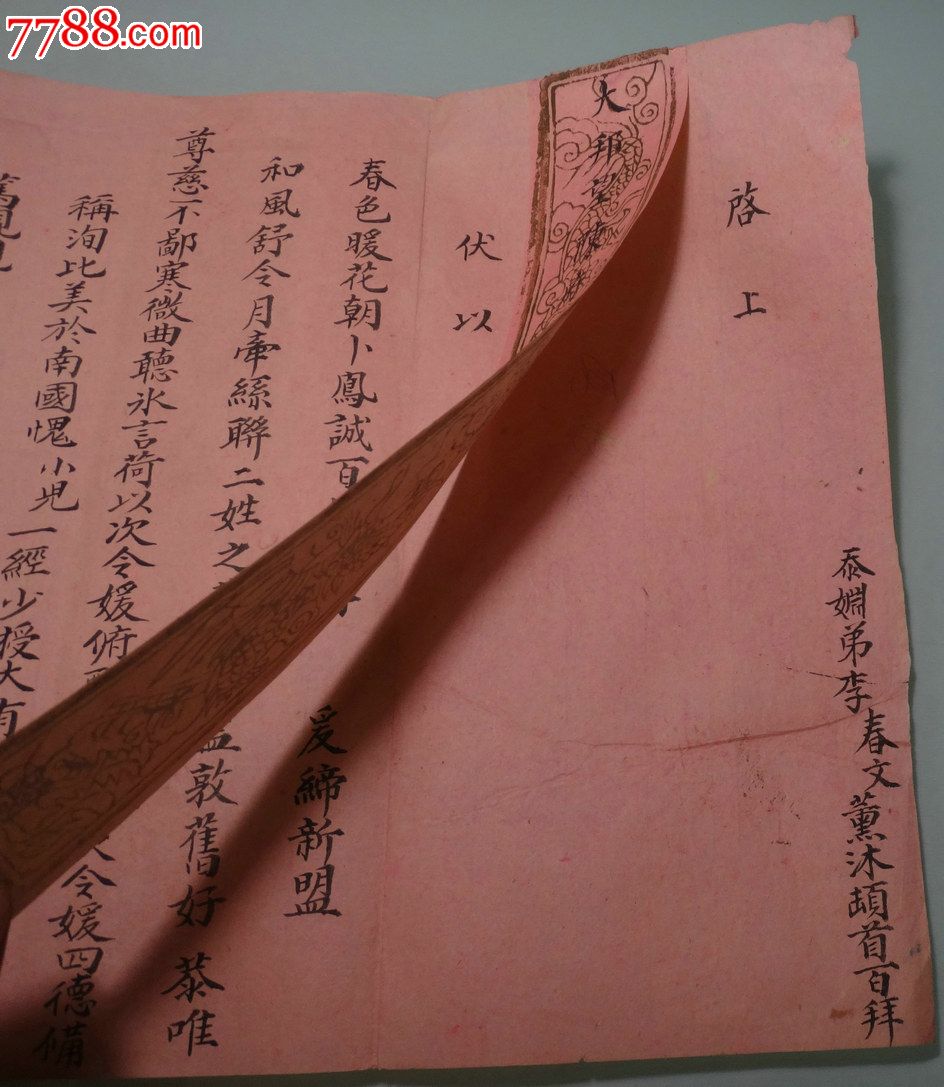 7788.com
忝姻弟李春文薰沐頓首百拜
啓上
大邦望
伏以
春色暖花朝卜鳳誠百
爰締新盟
和風舒令月牽絲聯二姓之
敦舊好 恭唯
尊慈不鄙寒微曲聽冰言荷以次令媛俯
令媛四德備
稱洵比美於南國愧小児一經少授大有